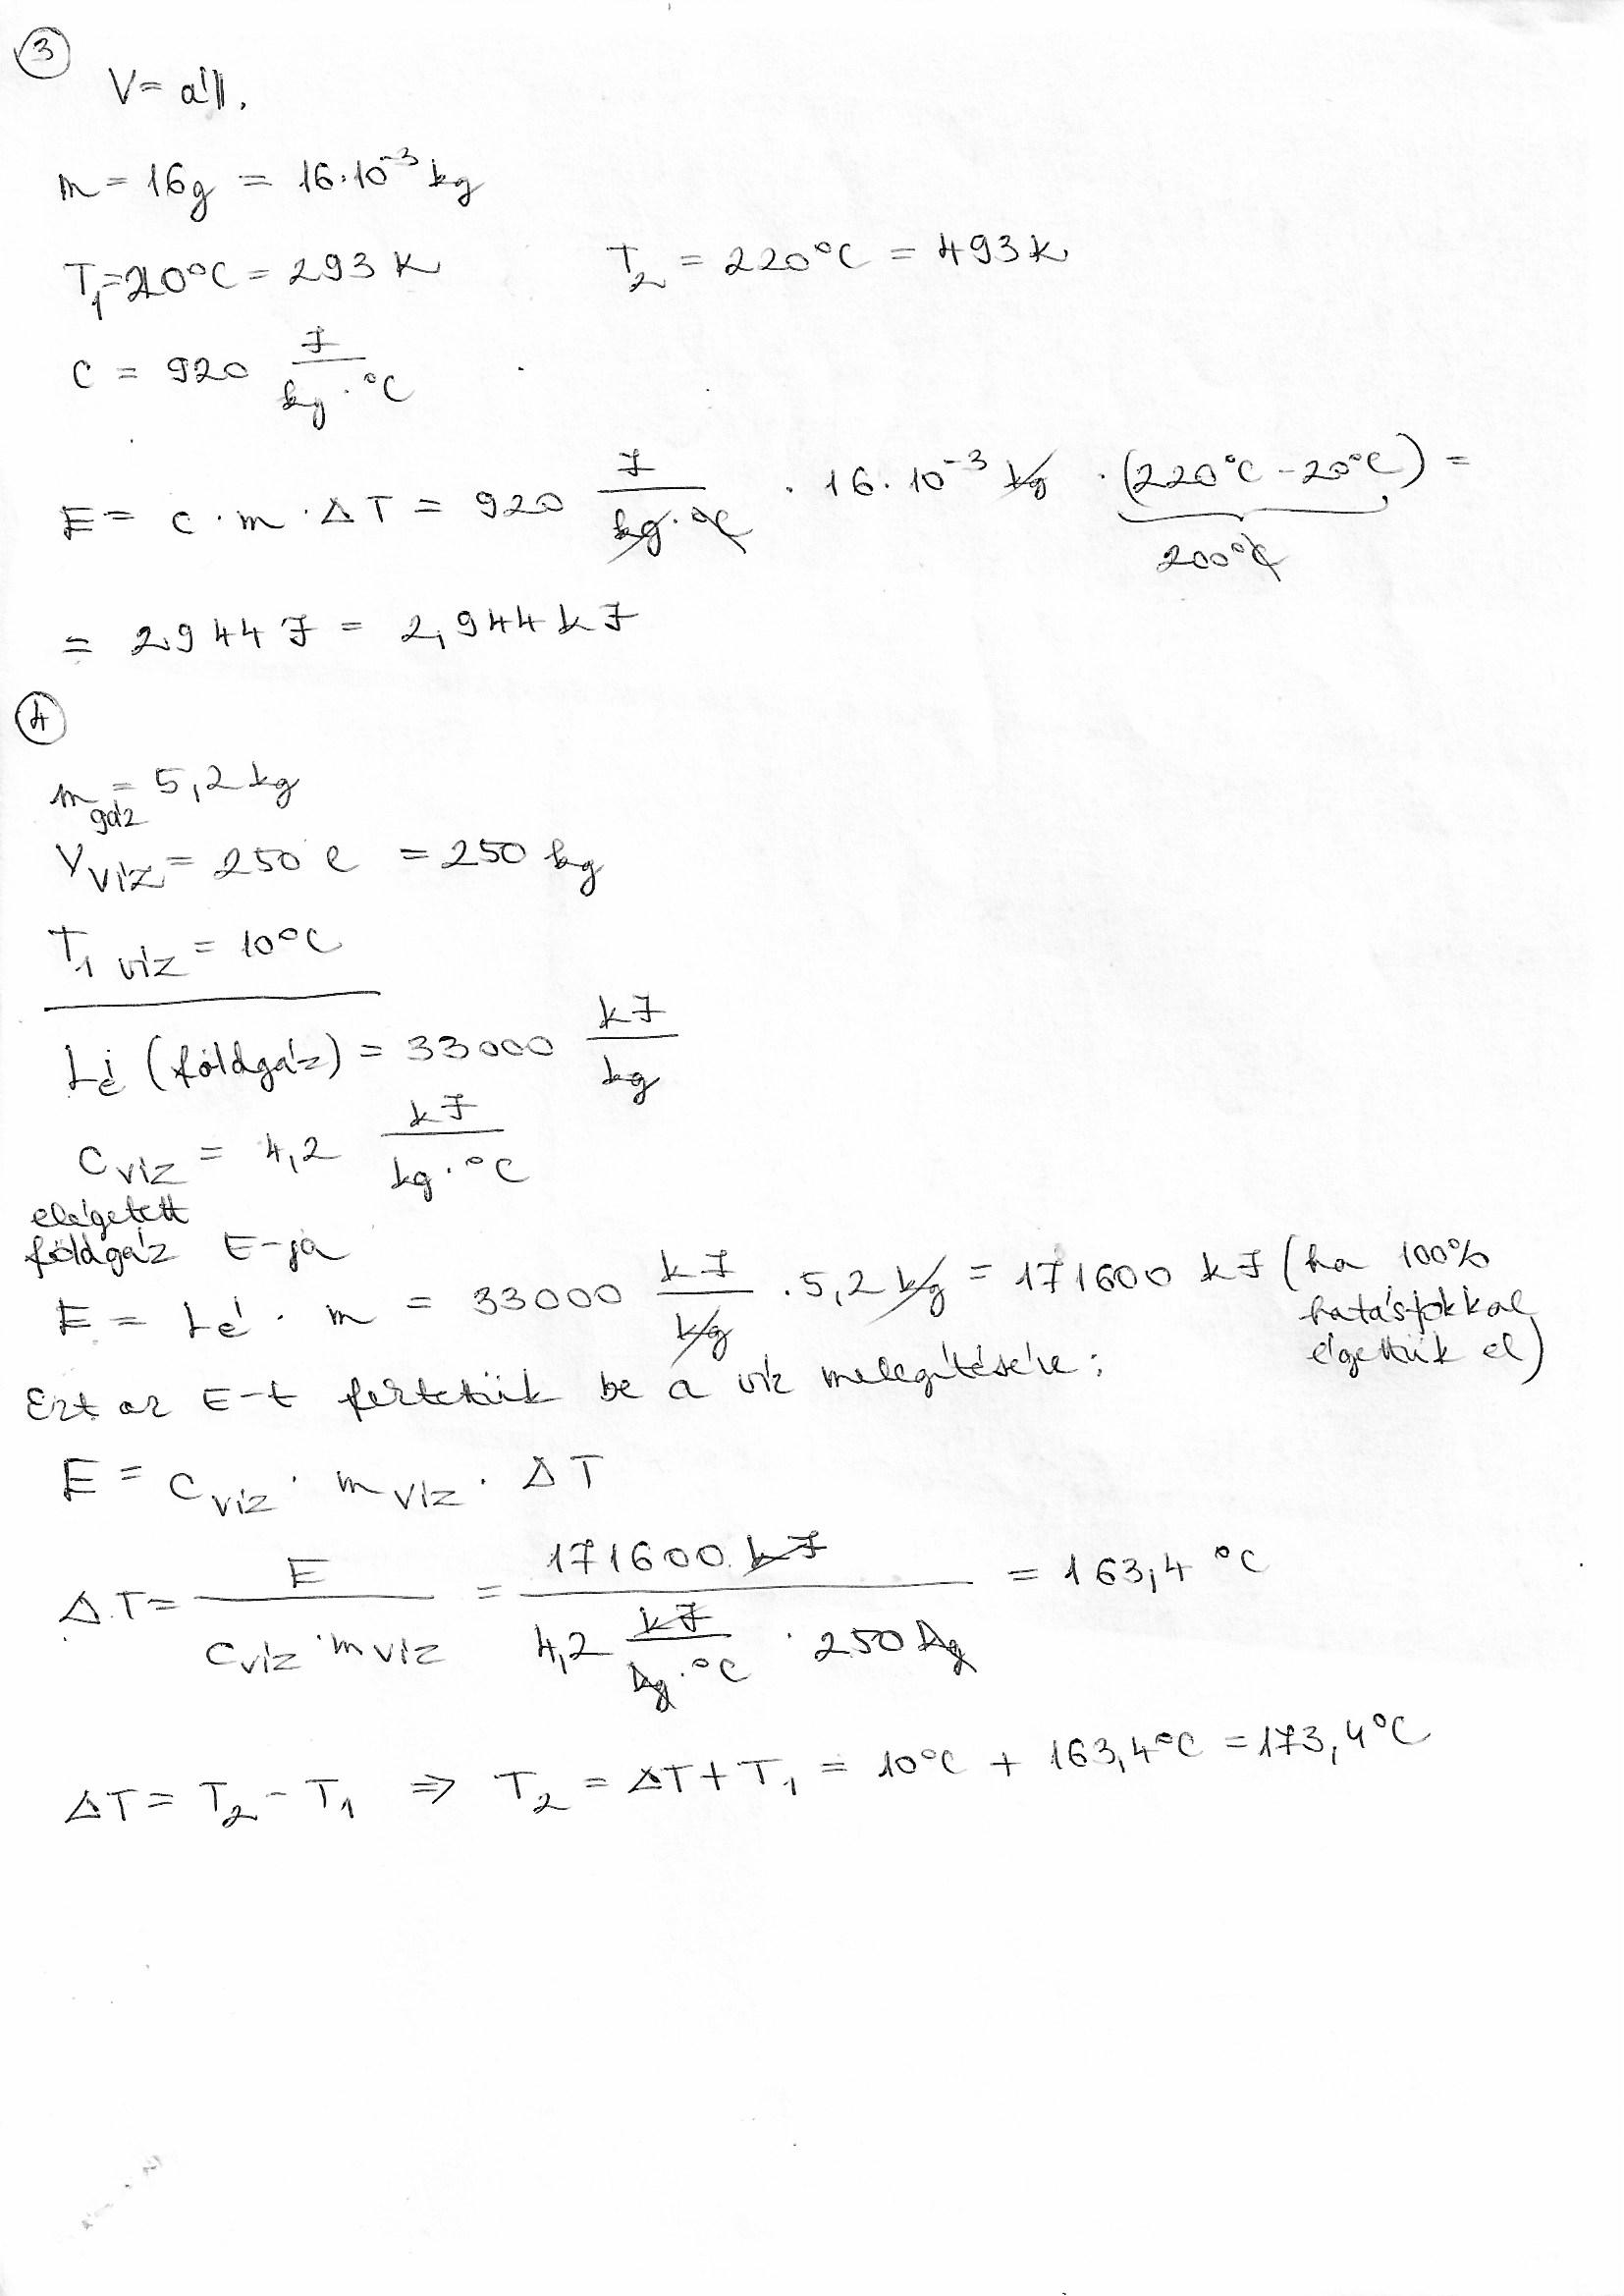 3
V = áll.
m = 16g = 16·10⁻³ kg
T₁ = 20°C = 293 K T₂ = 220°C = 493 K
c = 920 J/(kg·°C)
E = c · m · ΔT = 920 J/(kg·°C) · 16·10⁻³ kg · (220°C - 20°C) =
200°C
= 2944 J = 2,944 kJ
4
m gáz = 5,2 kg
V víz = 250 l = 250 kg
T₁ víz = 10°C
Lé (földgáz) = 33000 kJ/kg
c víz = 4,2 kJ/(kg·°C)
elégetett
földgáz E-ja
E = Lé · m = 33000 kJ/kg · 5,2 kg = 171600 kJ (ha 100%
hatásfokkal
égettük el)
Ezt az E-t fektettük be a víz melegítésére:
E = c víz · m víz · ΔT
ΔT = E/(c víz · m víz) = 171600 kJ/(4,2 kJ/(kg·°C) · 250 kg) = 163,4 °C
ΔT = T₂ - T₁ ⇒ T₂ = ΔT + T₁ = 10°C + 163,4°C = 173,4°C